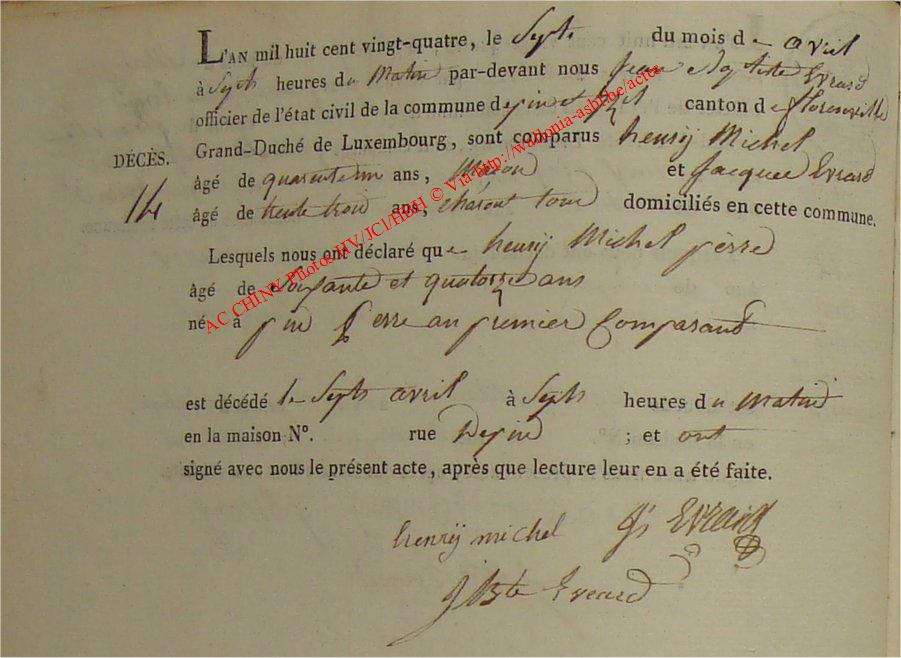 L'AN mil huit cent vingt-quatre, le Septe du mois de avril
à Septs heures du Matin par-devant nous Jean Bqtiste Evrard
officier de l'état civil de la commune de pin et canton de florenville
Grand-Duché de Luxembourg, sont comparus henrÿ Michel
DÉCÈS.
14
âgé de quarente un ans, Maçon et Jacque Evrard
âgé de trente trois ans, domiciliés en cette commune.
Lesquels nous ont déclaré que henrÿ Michel pèrre
âgé de Soixante et quatorze ans
né à pin perre au premier Comparant
est décédé le Septs avril à Septs heures du Matin
en la maison N°. rue De pin ; et ont
signé avec nous le présent acte, après que lecture leur en a été faite.
henrÿ michel Js Evrard
J Bte Evrard
AC CHINY Photos HV/JCl/HBH © Via http://wallonia-asbl.be/actes